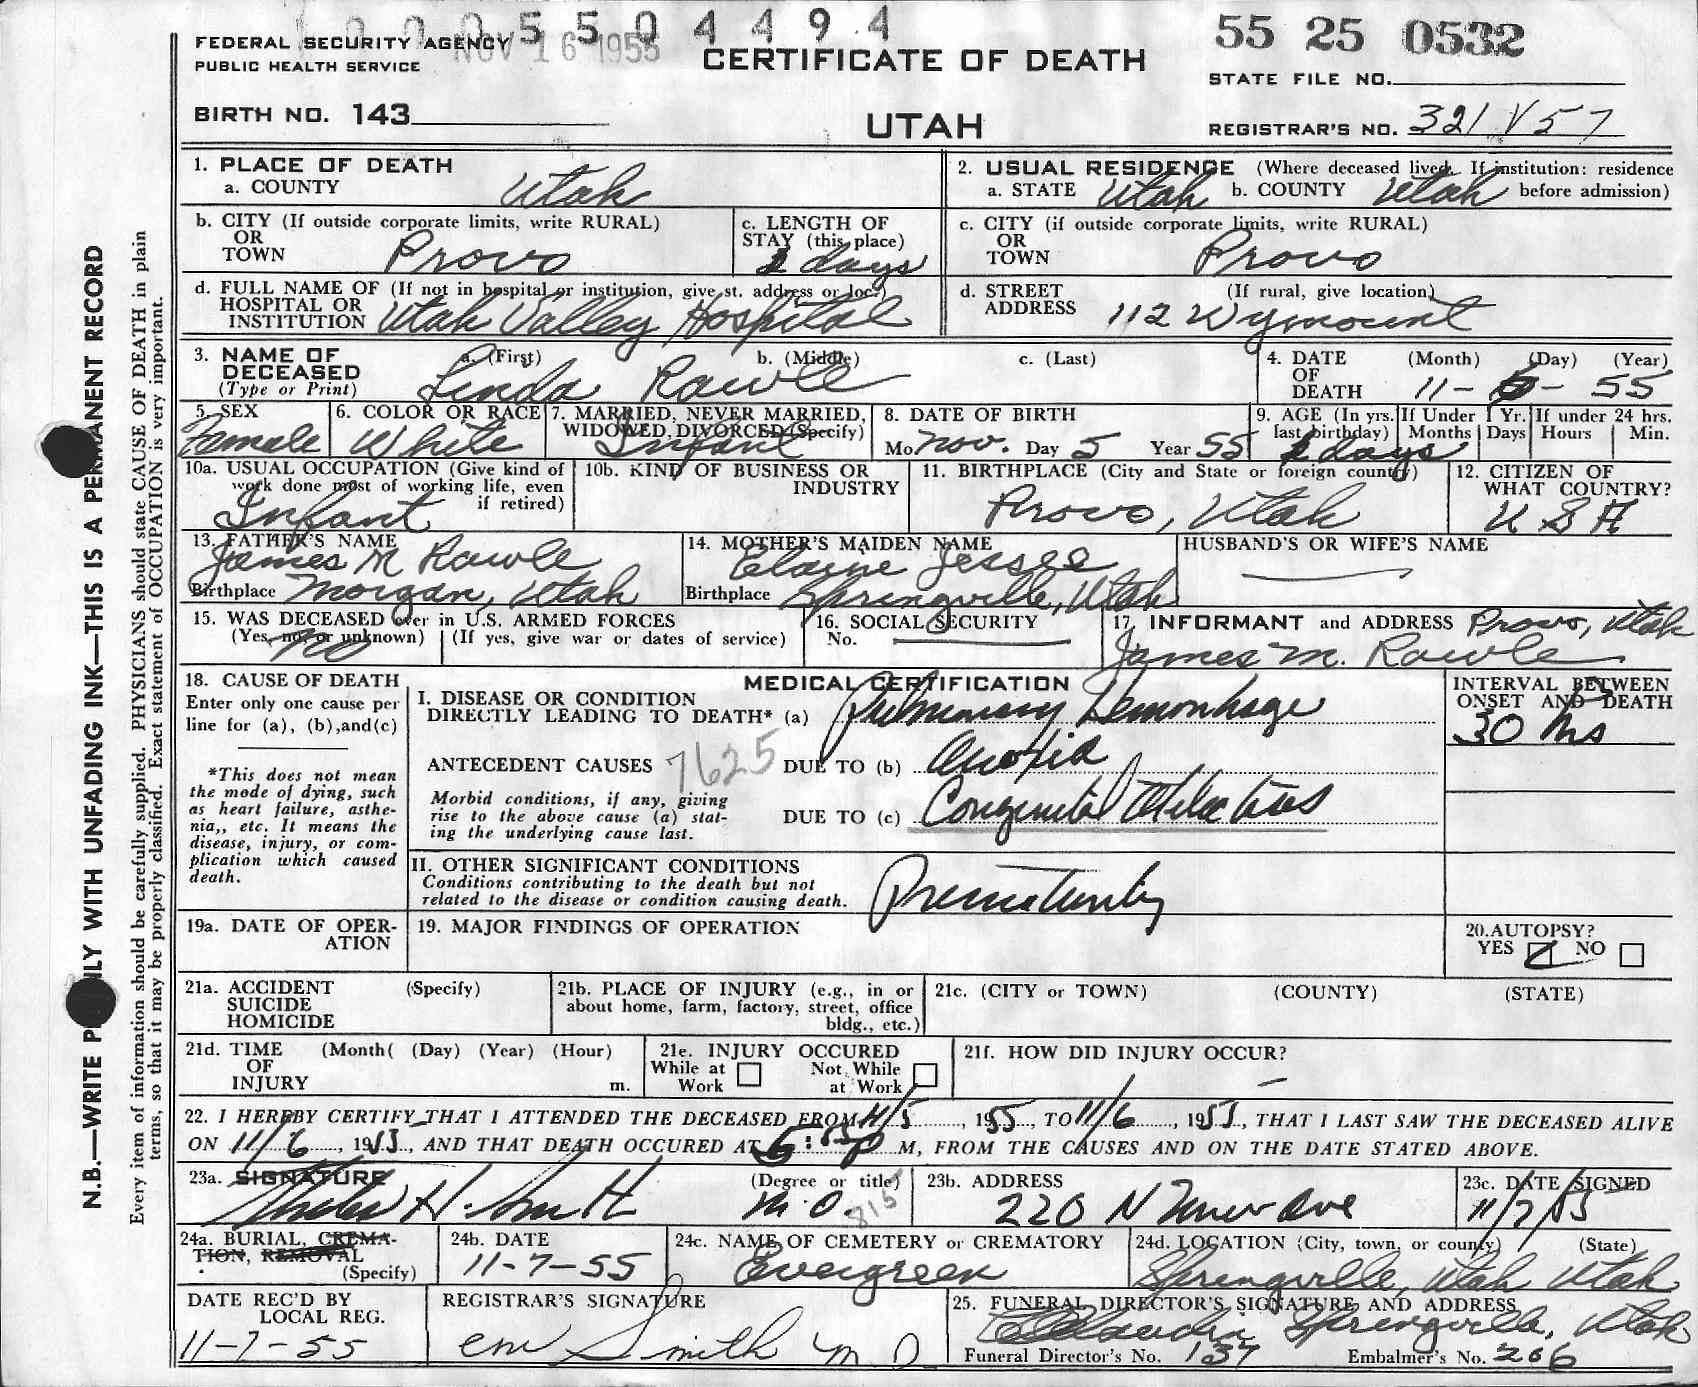 1 0 0 0 5 5 0 4 4 9 4
55 25 0532
FEDERAL SECURITY AGENCY NOV 16 1955
PUBLIC HEALTH SERVICE
CERTIFICATE OF DEATH
STATE FILE NO.
BIRTH NO. 143
UTAH
REGISTRAR'S NO. 321 V57
1. PLACE OF DEATH
a. COUNTY Utah
2. USUAL RESIDENCE (Where deceased lived. If institution: residence
a. STATE Utah b. COUNTY Utah before admission)
b. CITY (If outside corporate limits, write RURAL)
OR
TOWN Provo
c. LENGTH OF
STAY (this place)
days
c. CITY (if outside corporate limits, write RURAL)
OR
TOWN Provo
d. FULL NAME OF (If not in hospital or institution, give st. address or loc.)
HOSPITAL OR
INSTITUTION Utah Valley Hospital
d. STREET (If rural, give location)
ADDRESS 112 Wymount
3. NAME OF
DECEASED
(Type or Print)
a. (First) b. (Middle) c. (Last)
Linda Rawle
4. DATE (Month) (Day) (Year)
OF
DEATH 11-6-55
5. SEX
Female
6. COLOR OR RACE
White
7. MARRIED, NEVER MARRIED,
WIDOWED, DIVORCED (Specify)
Infant
8. DATE OF BIRTH
Mo Nov. Day 5 Year 55
9. AGE (In yrs.
last birthday)
days
If Under 1 Yr.
Months Days
If under 24 hrs.
Hours Min.
10a. USUAL OCCUPATION (Give kind of
work done most of working life, even
if retired)
Infant
10b. KIND OF BUSINESS OR
INDUSTRY
11. BIRTHPLACE (City and State or foreign county)
Provo, Utah
12. CITIZEN OF
WHAT COUNTRY?
U S A
13. FATHER'S NAME
James M Rawle
Birthplace Morgan, Utah
14. MOTHER'S MAIDEN NAME
Elaine Jessee
Birthplace Springville, Utah
HUSBAND'S OR WIFE'S NAME
15. WAS DECEASED ever in U.S. ARMED FORCES
(Yes, no, or unknown) (If yes, give war or dates of service)
No
16. SOCIAL SECURITY
No.
17. INFORMANT and ADDRESS Provo, Utah
James M. Rawle
18. CAUSE OF DEATH
Enter only one cause per
line for (a), (b), and (c)
*This does not mean
the mode of dying, such
as heart failure, asthe-
nia,, etc. It means the
disease, injury, or com-
plication which caused
death.
MEDICAL CERTIFICATION
I. DISEASE OR CONDITION
DIRECTLY LEADING TO DEATH* (a) Pulmonary Hemorrhage
INTERVAL BETWEEN
ONSET AND DEATH
30
ANTECEDENT CAUSES 7625 DUE TO (b) Anoxia
Morbid conditions, if any, giving
rise to the above cause (a) stat-
ing the underlying cause last.
DUE TO (c) Congenital Atelectasis
II. OTHER SIGNIFICANT CONDITIONS
Conditions contributing to the death but not
related to the disease or condition causing death.
Prematurity
19a. DATE OF OPER-
ATION
19. MAJOR FINDINGS OF OPERATION
20. AUTOPSY?
YES NO
21a. ACCIDENT (Specify)
SUICIDE
HOMICIDE
21b. PLACE OF INJURY (e.g., in or
about home, farm, factory, street, office
bldg., etc.)
21c. (CITY or TOWN) (COUNTY) (STATE)
21d. TIME (Month( (Day) (Year) (Hour)
OF
INJURY m.
21e. INJURY OCCURED
While at Work
Not While at Work
21f. HOW DID INJURY OCCUR?
22. I HEREBY CERTIFY THAT I ATTENDED THE DECEASED FROM 11/5, 1955, TO 11/6, 1955, THAT I LAST SAW THE DECEASED ALIVE
ON 11/6, 1955, AND THAT DEATH OCCURED AT P M, FROM THE CAUSES AND ON THE DATE STATED ABOVE.
23a. SIGNATURE (Degree or title)
H. Smith M.D. 815
23b. ADDRESS
220 N Ave
23c. DATE SIGNED
11/7/55
24a. BURIAL, CREMA-
TION, REMOVAL
(Specify)
24b. DATE
11-7-55
24c. NAME OF CEMETERY or CREMATORY
Evergreen
24d. LOCATION (City, town, or county) (State)
Springville, Utah Utah
DATE REC'D BY
LOCAL REG.
11-7-55
REGISTRAR'S SIGNATURE
em Smith M D
25. FUNERAL DIRECTOR'S SIGNATURE AND ADDRESS
Springville, Utah
Funeral Director's No. 137 Embalmer's No. 206
N.B.—WRITE PLAINLY WITH UNFADING INK—THIS IS A PERMANENT RECORD
Every item of information should be carefully supplied. PHYSICIANS should state CAUSE OF DEATH in plain
terms, so that it may be properly classified. Exact statement of OCCUPATION is very important.